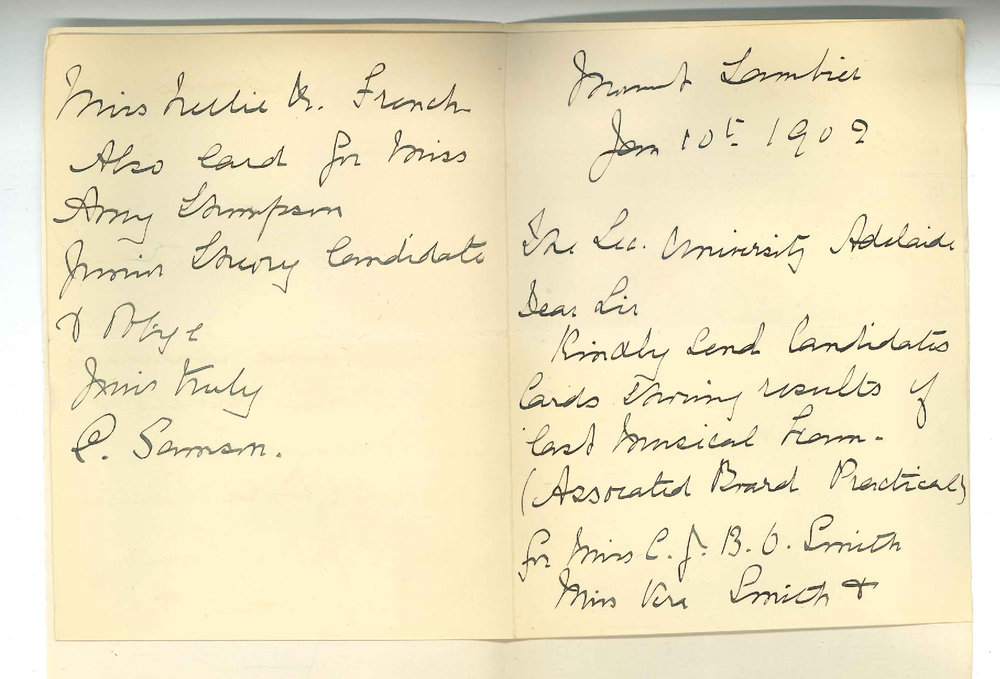 Mount Gambier
Jan 10th 1902
The Sec. University Adelaide
Dear Sir
Kindly send Candidates
Cards Showing results of
last Musical Exam.
(Assocated Board Practical)
for Miss C. J. B. O. Smith
Miss Vera Smith &
Miss Nellie French
Also Card for Miss
Amy Thompson
Junior Theory Candidate
& Oblige
Yours truly
C. Samson.